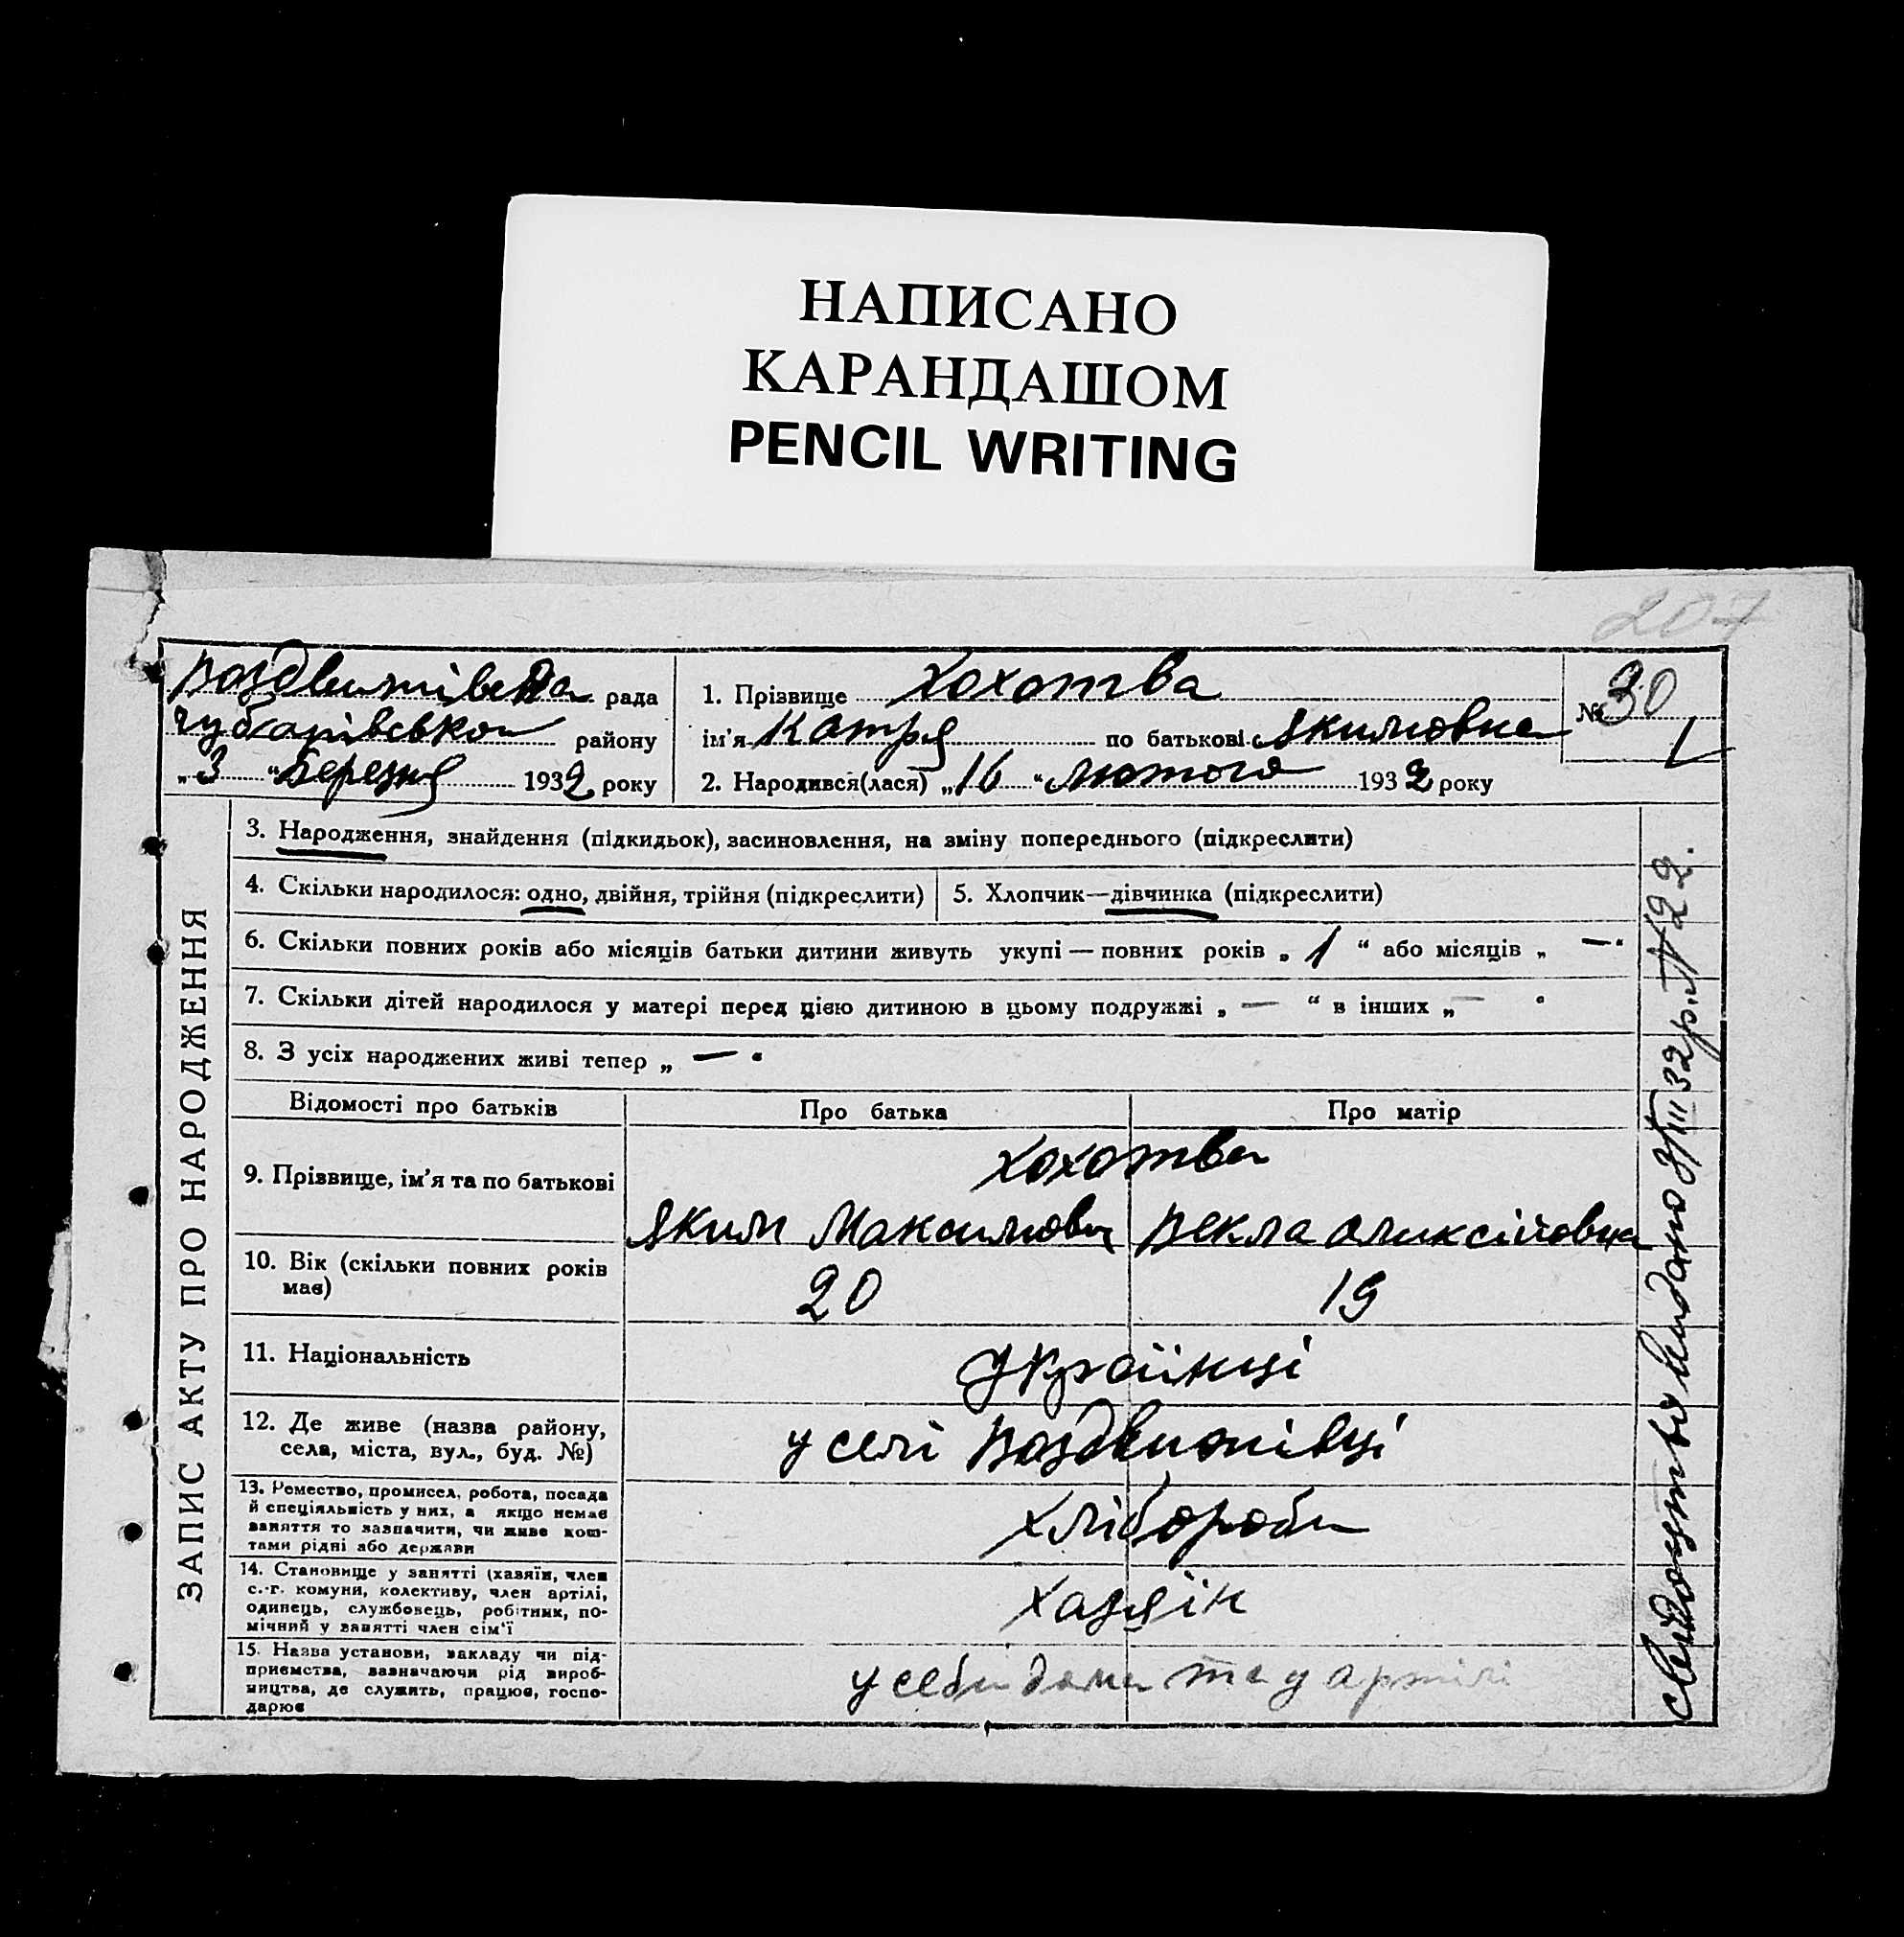 НАПИСАНО
КАРАНДАШОМ
PENCIL WRITING
207
Воздвижівська рада
району
„3“ Березня 1932 року
1. Прізвище Хохотва
ім'я Катря по батькові Якимовна
2. Народився(лася) „16“ Лютого 1932 року
№ 30
ЗАПИС АКТУ ПРО НАРОДЖЕННЯ
3. Народження, знайдення (підкидьок), засиновлення, на зміну попереднього (підкреслити)
4. Скільки народилося: одно, двійня, трійня (підкреслити)
5. Хлопчик—дівчинка (підкреслити)
6. Скільки повних років або місяців батьки дитини живуть укупі — повних років „ 1 “ або місяців „ — “
7. Скільки дітей народилося у матері перед цією дитиною в цьому подружжі „ — “ в інших „ — “
8. З усіх народжених живі тепер „ — “
Відомості про батьків
Про батька
Про матір
9. Прізвище, ім'я та по батькові
Хохотва
Яким Максимович
Векла Оликсійовна
10. Вік (скільки повних років
має)
20
19
11. Національність
Українці
12. Де живе (назва району,
села, міста, вул., буд. №)
у селі Воздвижівці
13. Ремество, промисел, робота, посада
й спеціяльність у них, а якщо немає
заняття то зазначити, чи живе кош-
тами рідні або держави
хлібороби
14. Становище у занятті (хазяїн, член
с.-г. комуни, колективу, член артілі,
одинець, службовець, робітник, по-
мічний у занятті член сім'ї
хазяїн
15. Назва установи, закладу чи під-
приємства, зазначаючи рід вироб-
ництва, де служить, працює, госпо-
дарює
у себи дома та у артілі
свидоцтво видано 3/III 32 р. № 22.